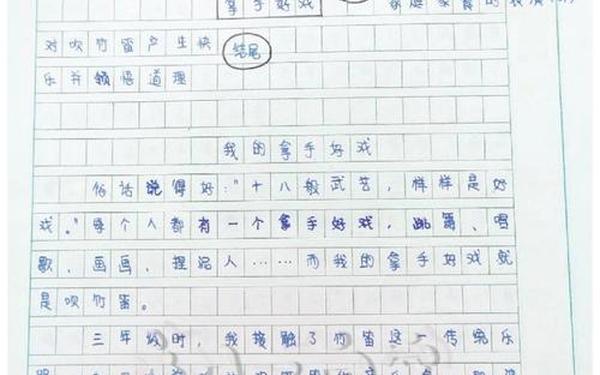 拿手好戏
对吹竹笛产生快
结尾
乐并领悟道理
我的拿手好戏
俗话说得好："十八般武艺，样样是好
戏。"每个人都有一个拿手好戏，跳舞、唱
歌、画画、捏泥人……而我的拿手好戏就
是吹竹笛。
三年级时，我接触了竹笛这一传统乐